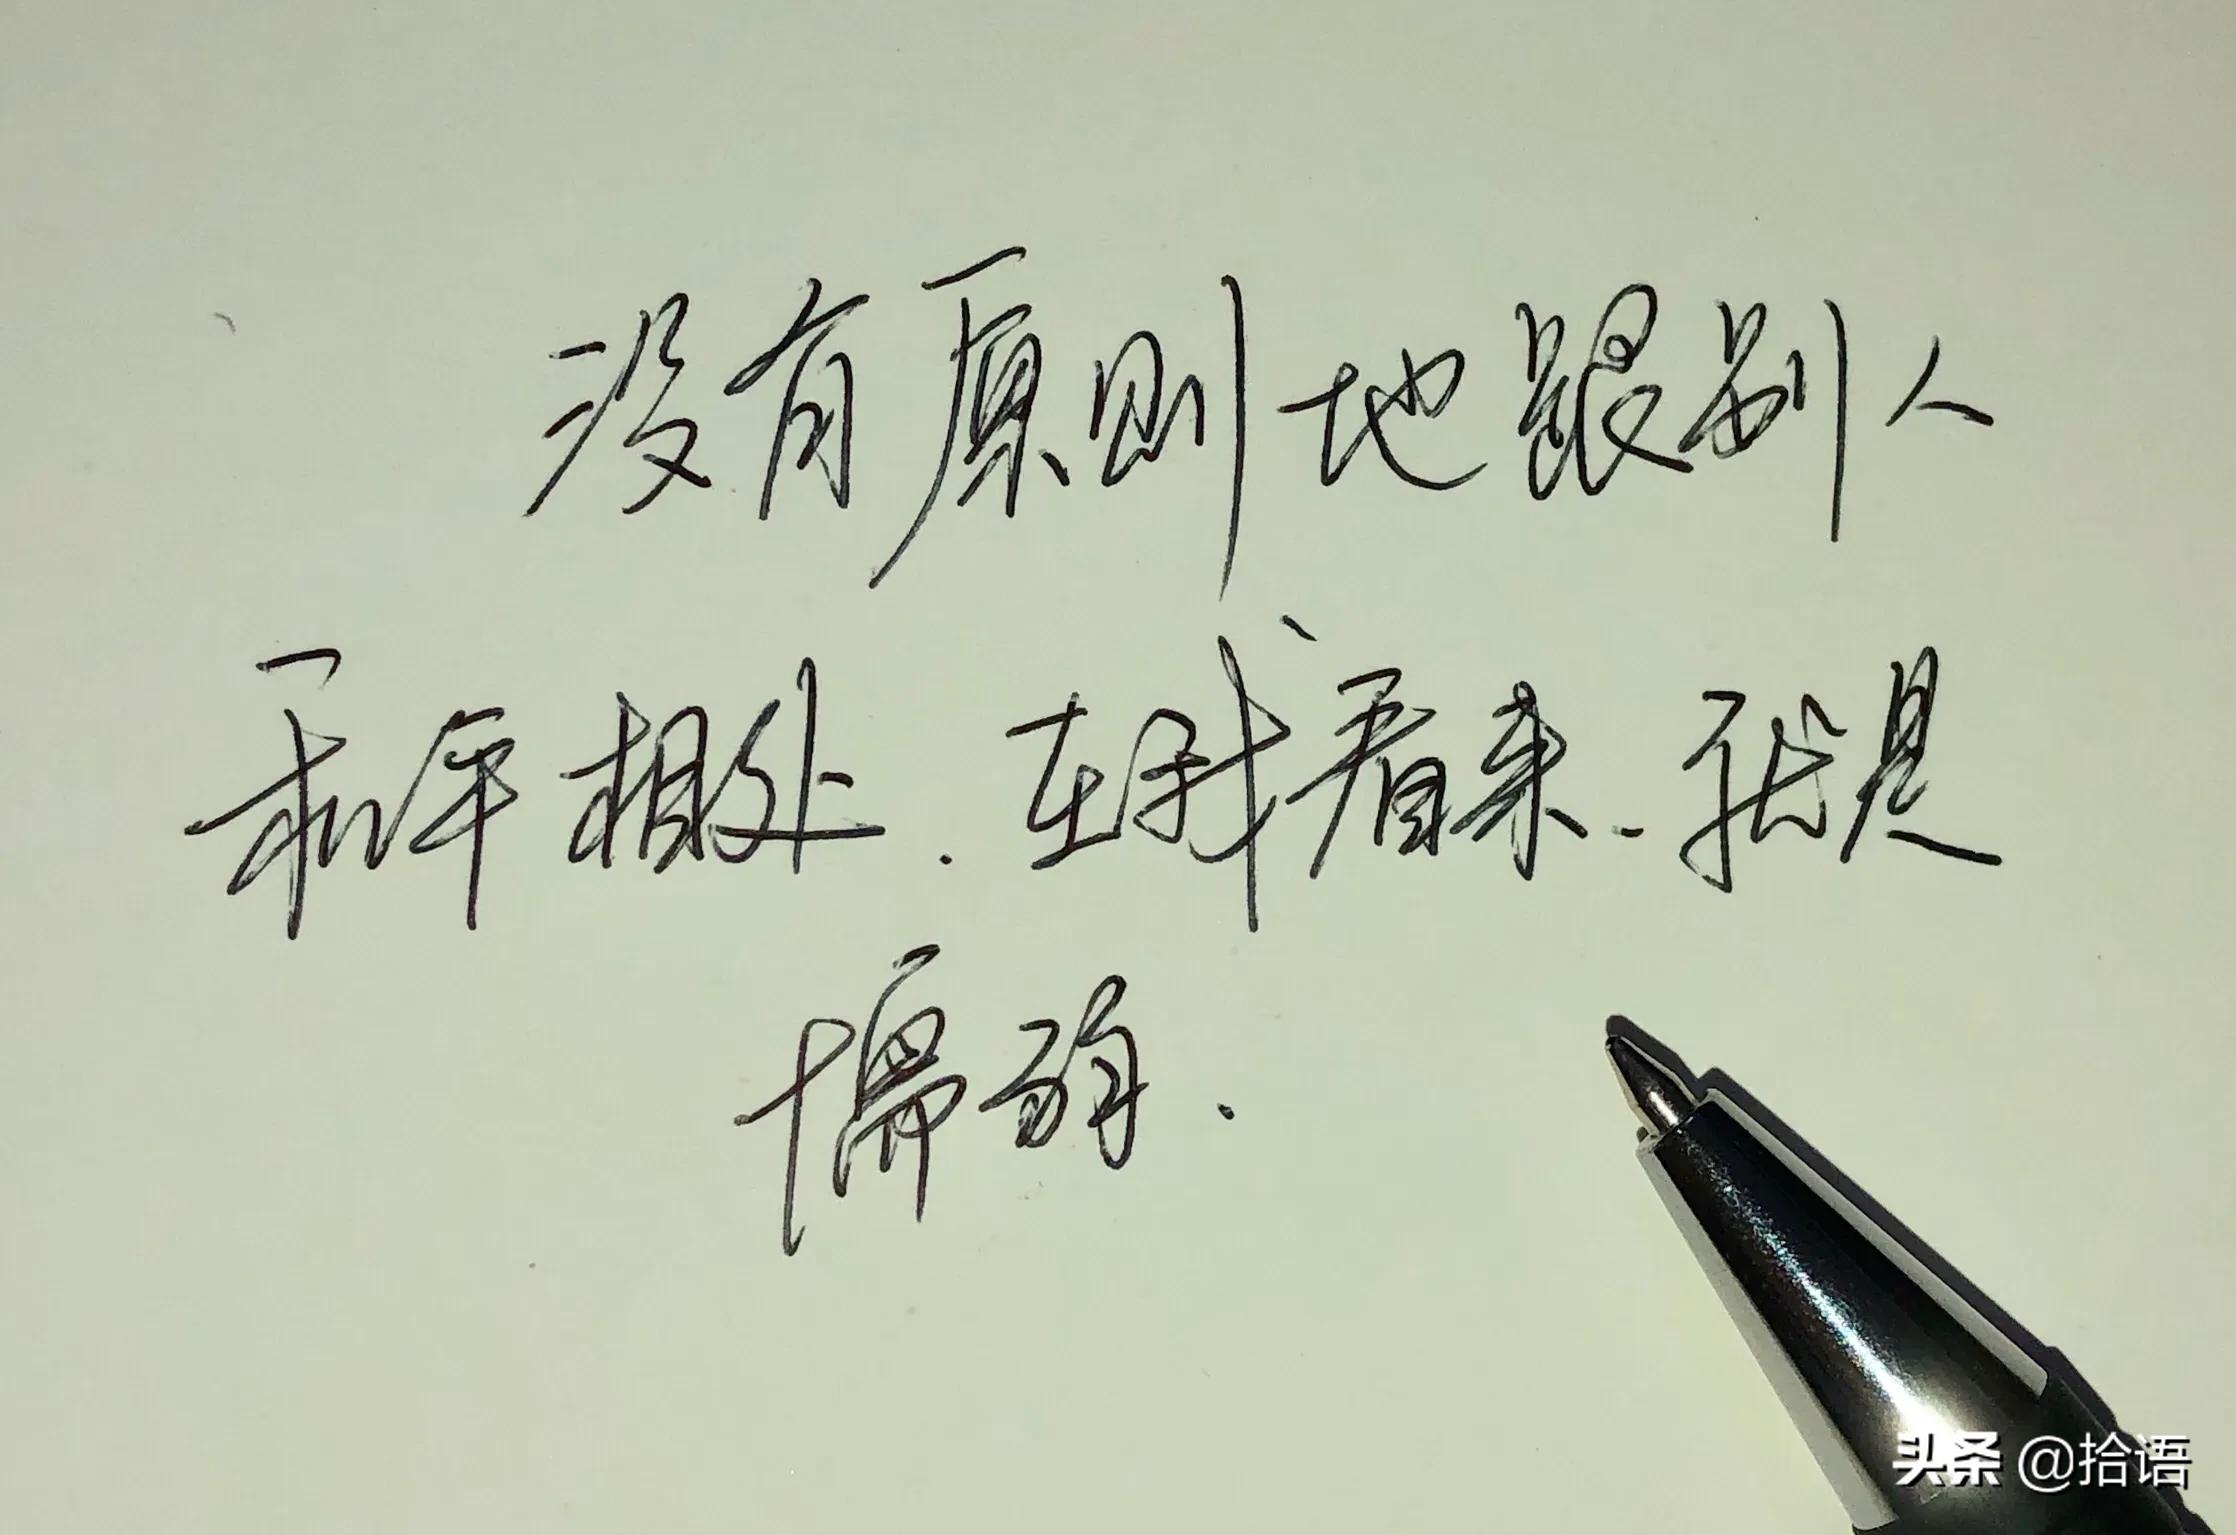 没有原则地跟别人
和平相处.在我看来.就是
懦弱.
头条 @拾语